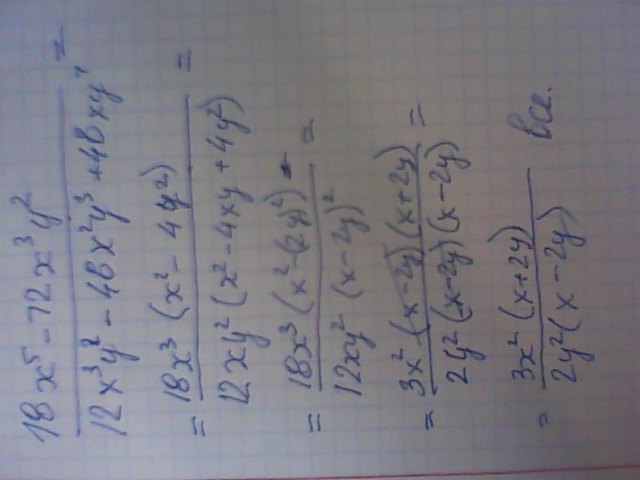 18x⁵ - 72x³y²
12x³y² - 48x²y³ + 48xy⁴ =
= 18x³ (x² - 4y²)
12xy² (x² - 4xy + 4y²) =
= 18x³ (x² - (2y)²)
12xy² (x - 2y)² =
= 3x² (x - 2y) (x + 2y)
2y² (x - 2y) (x - 2y) =
= 3x² (x + 2y)
2y² (x - 2y) Все.